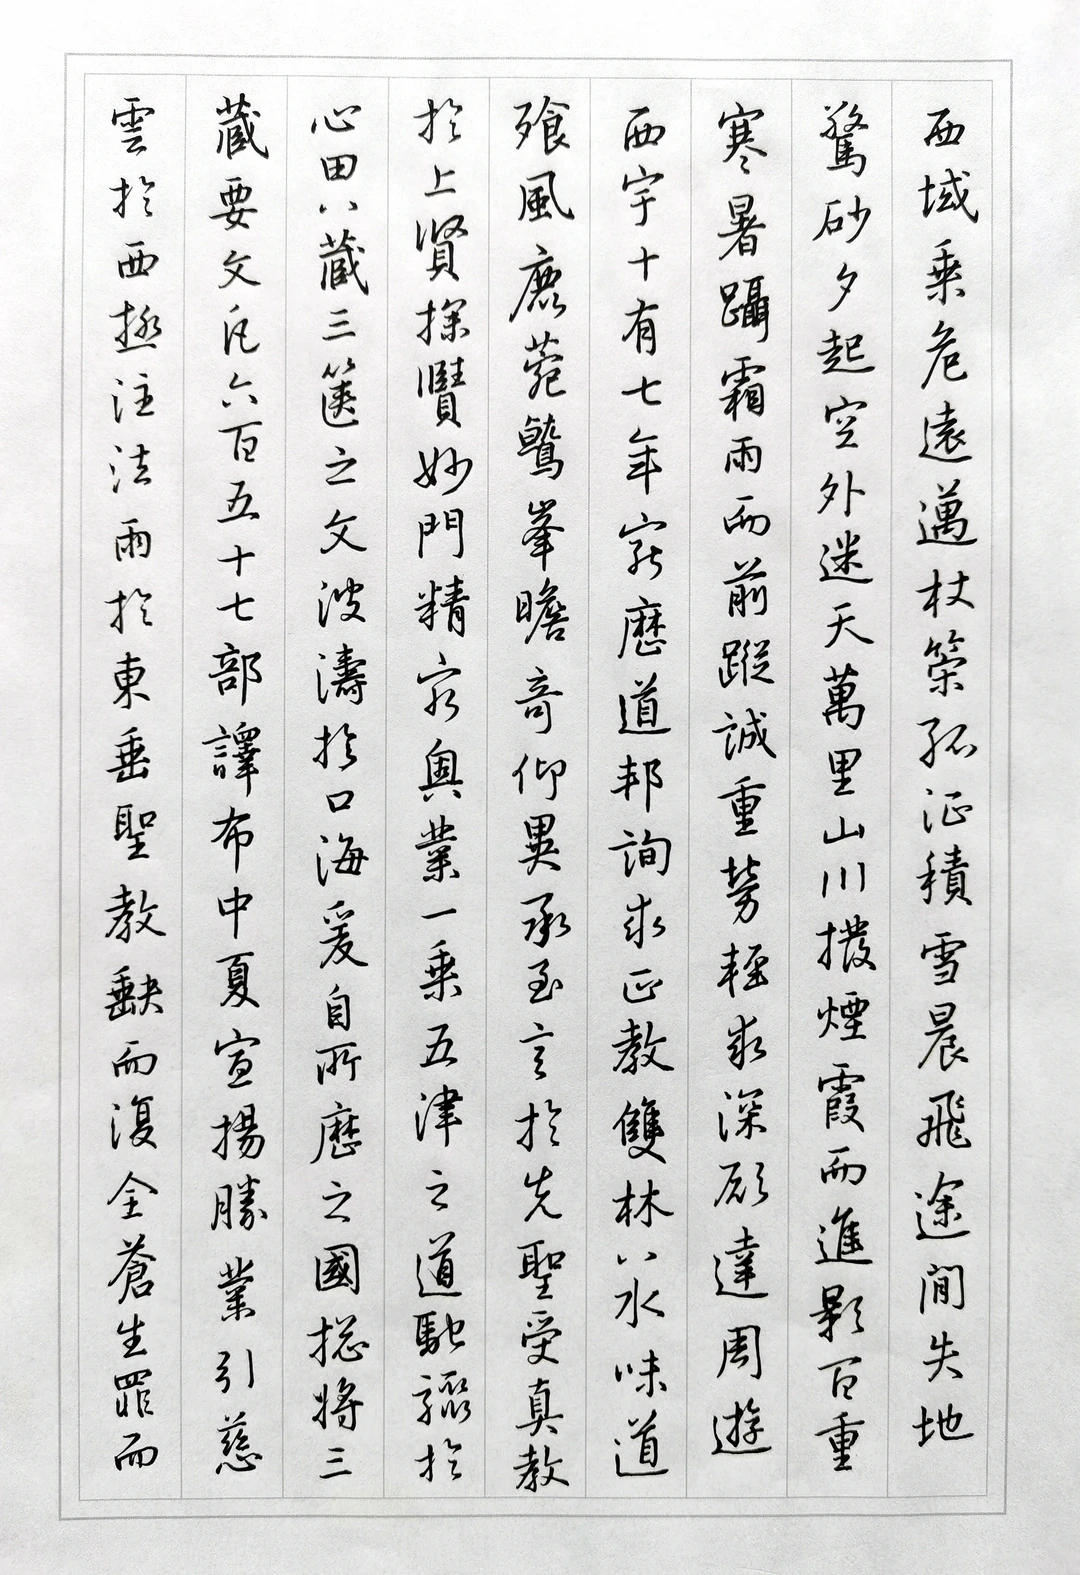 西域乗危遠邁杖策孤征積雪晨飛途間失地
驚砂夕起空外迷天萬里山川撥煙霞而進影百重
寒暑躡霜雨而前蹤誠重勞輕求深願達周遊
西宇十有七年窮歷道邦詢求正教雙林八水味道
飡風鹿菀鷲峯瞻奇仰異承至言於先聖受真教
於上賢探賾妙門精窮奧業一乗五津之道馳驟於
心田八藏三篋之文波濤於口海爰自所歷之國捴將三
藏要文凡六百五十七部譯布中夏宣揚勝業引慈
雲於西極注法雨於東垂聖教缺而復全蒼生罪而